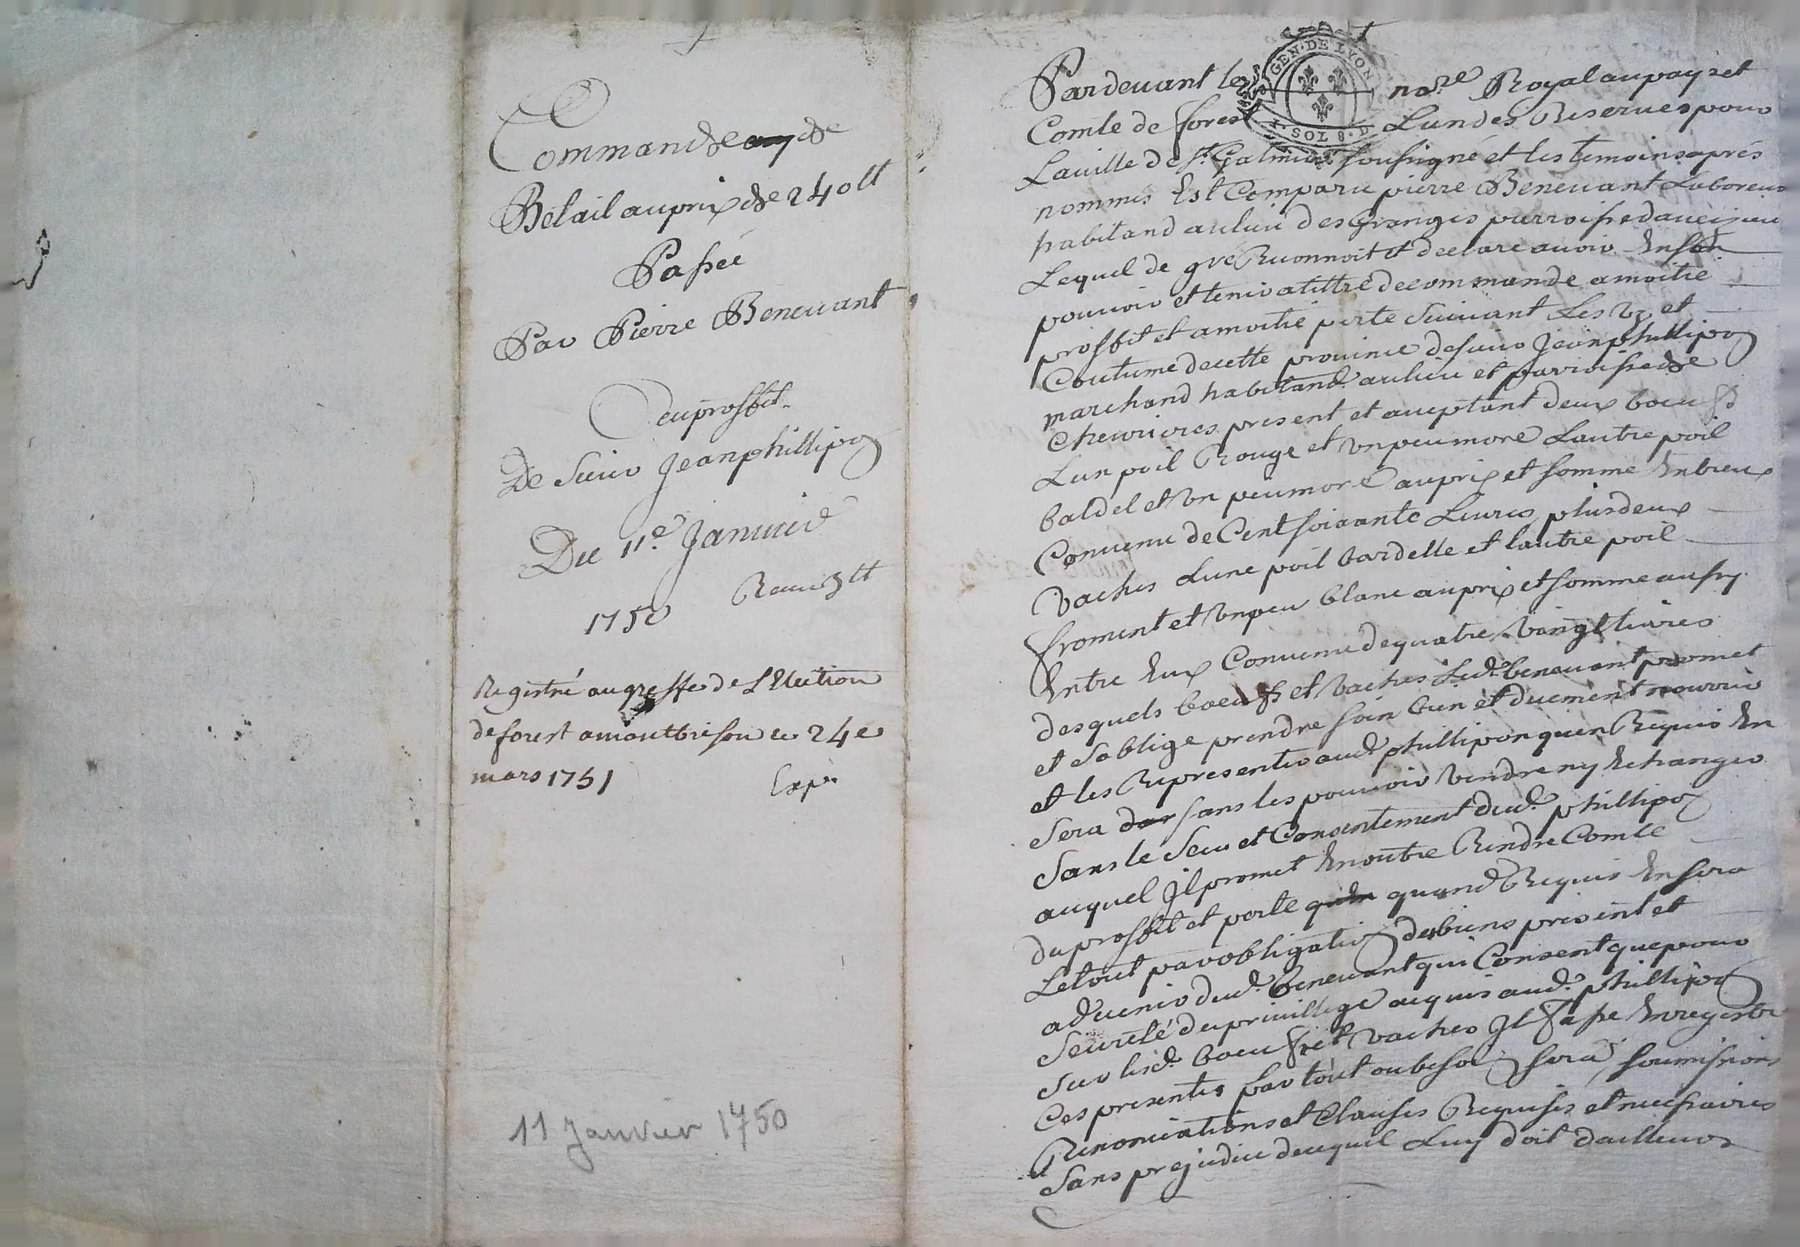 Commande de
Betail au prix de 240 lt
Passée
Par Pierre Benevant
Au proffit
De Sieur Jean phillipon
Du 11e Janvier
1750 Receu 3 lt
Registré au greffe de L'Election
de forest a montbrison le 24e
mars 1751 Exp
11 Janvier 1750
Pardevant le nore Royal au pays et
GEN. DE LYON
Comté de forest Lun des Reserves pour
SOLS 8 D
La ville de St Galmier soussigné et les temoins aprés
nommés Est Comparu pierre Benevant Laboreur
habitand au lieu des Granges parroisse daveizieu
Lequel de gré Reconnoit et declare avoir En son
pouvoir et tenir a tittre de commande a moitié
proffit et a moitié perte Suivant Les us et
Coutume de cette province de sieur Jean phillipon
marchand habitand au lieu et parroisse de
Chevrieres present et acceptant deux boeufs
Lun poil Rouge et Un peu more Lautre poil
baldel et Un peu more au prix et somme Entreux
Convenu de Cent soixante Livres plus deux
Vaches Lune poil bardelle et lautre poil
froment et Un peu blanc au prix et somme aussy
Entre Eux Convenu de quatre Vingt livres
desquels boeufs et Vaches Led. benevant promet
et soblige prendre soin bien et duement nourrir
et les Representer aud. phillipon quen Requis En
Sera sans les pouvoir Vendre ny Echanger
Sans le Sceu et Consentement dud. phillipon
auquel Jl promet En outre Rendre Comte
du proffit et perte quand Requis En sera
Le tout par obligation des biens present et
advenir dud. benevant qui Consent que pour
Seureté du privillege acquis aud. phillipon
sur lesd. boeufs et Vaches Jl fasse Enregistrer
Ces presentes par tout ou besoin sera soumissions
Renonciations et Clauses Requises et necessaires
Sans prejudice de ce quil Luy doit dailleurs